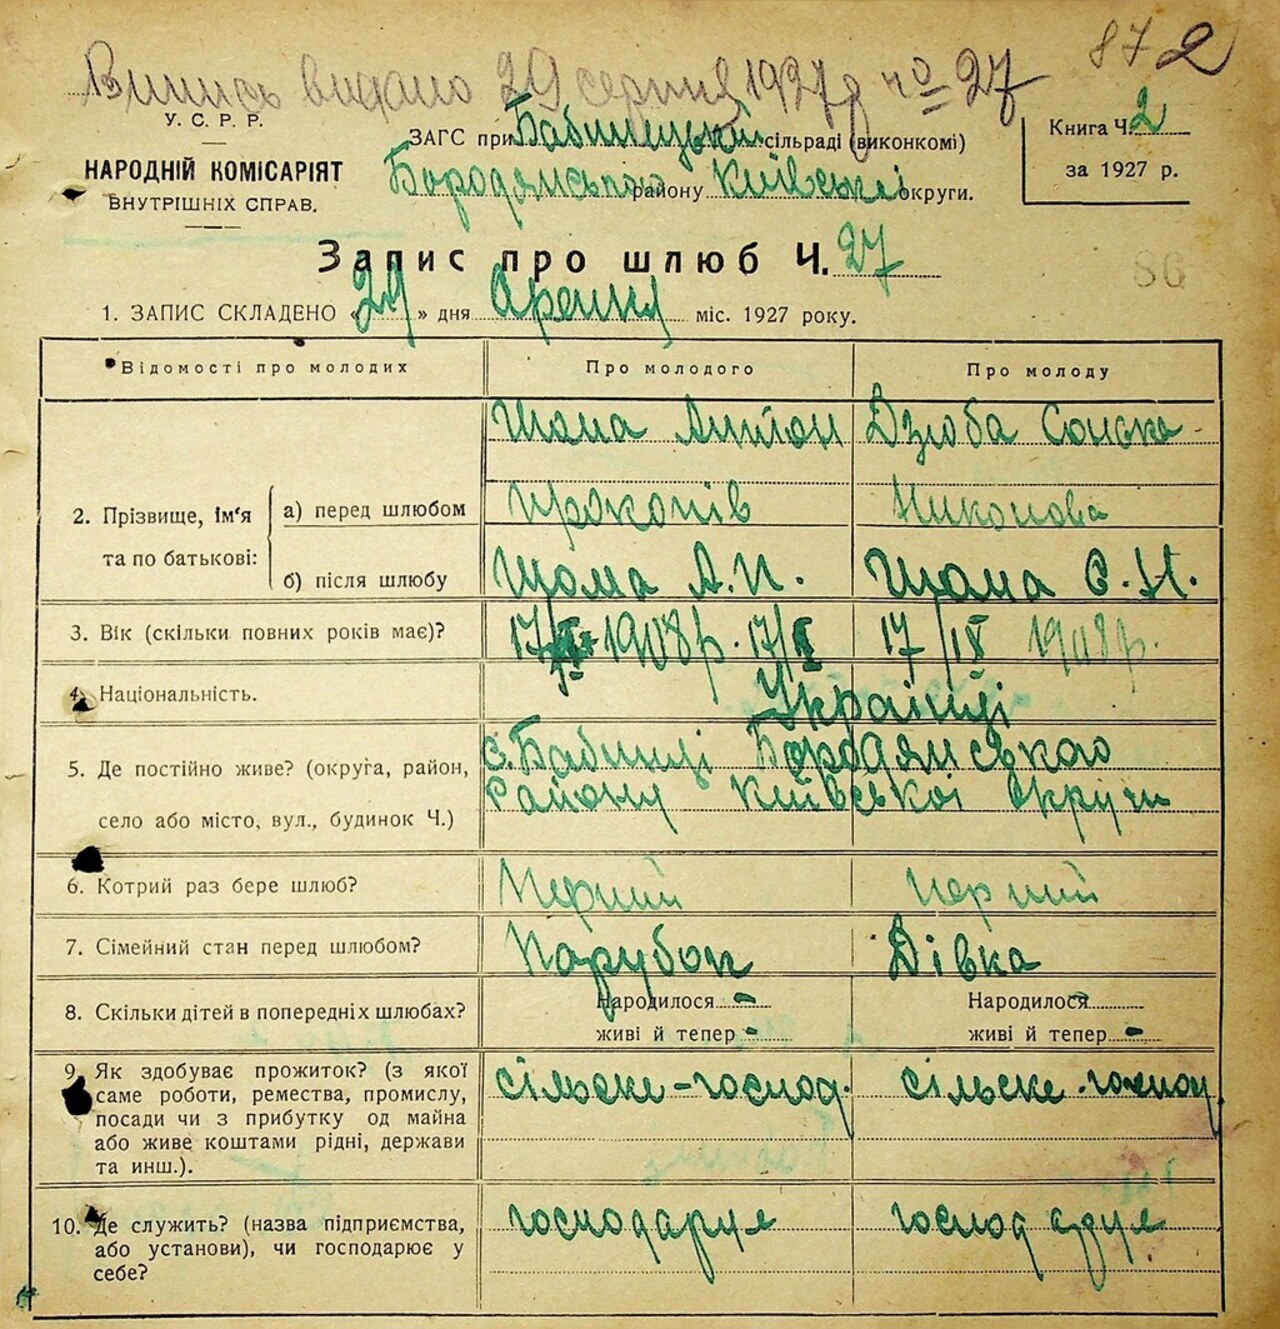 87 2
Випись видано 29 серпня 1927р. № 27
У. С. Р. Р.
НАРОДНІЙ КОМІСАРІЯТ
ВНУТРІШНІХ СПРАВ.
ЗАГС при Бабинецькій сільраді (виконкомі)
Бородянського району Київської округи.
Книга Ч. 2
за 1927 р.
Запис про шлюб Ч. 27
86
1. ЗАПИС СКЛАДЕНО « 29 » дня Серпня міс. 1927 року.
Відомості про молодих
Про молодого
Про молоду
2. Прізвище, ім'я
та по батькові:
а) перед шлюбом
Шома Антон
Прокопів
Дзюба Сонька
Никонова
б) після шлюбу
Шома А. П.
Шома С. Н.
3. Вік (скільки повних років має)?
1908р. 17/X
17/IX 1908р.
4. Національність.
Українці
5. Де постійно живе? (округа, район,
село або місто, вул., будинок Ч.)
с. Бабинці Бородянського
Району Київської округи
6. Котрий раз бере шлюб?
Перший
Перший
7. Сімейний стан перед шлюбом?
Парубок
Дівка
8. Скільки дітей в попередніх шлюбах?
Народилося -
живі й тепер -
Народилося -
живі й тепер -
9. Як здобуває прожиток? (з якої
саме роботи, ремества, промислу,
посади чи з прибутку од майна
або живе коштами рідні, держави
та инш.).
сільське-господ.
сільське-господ
10. Де служить? (назва підприємства,
або установи), чи господарює у
себе?
господарує